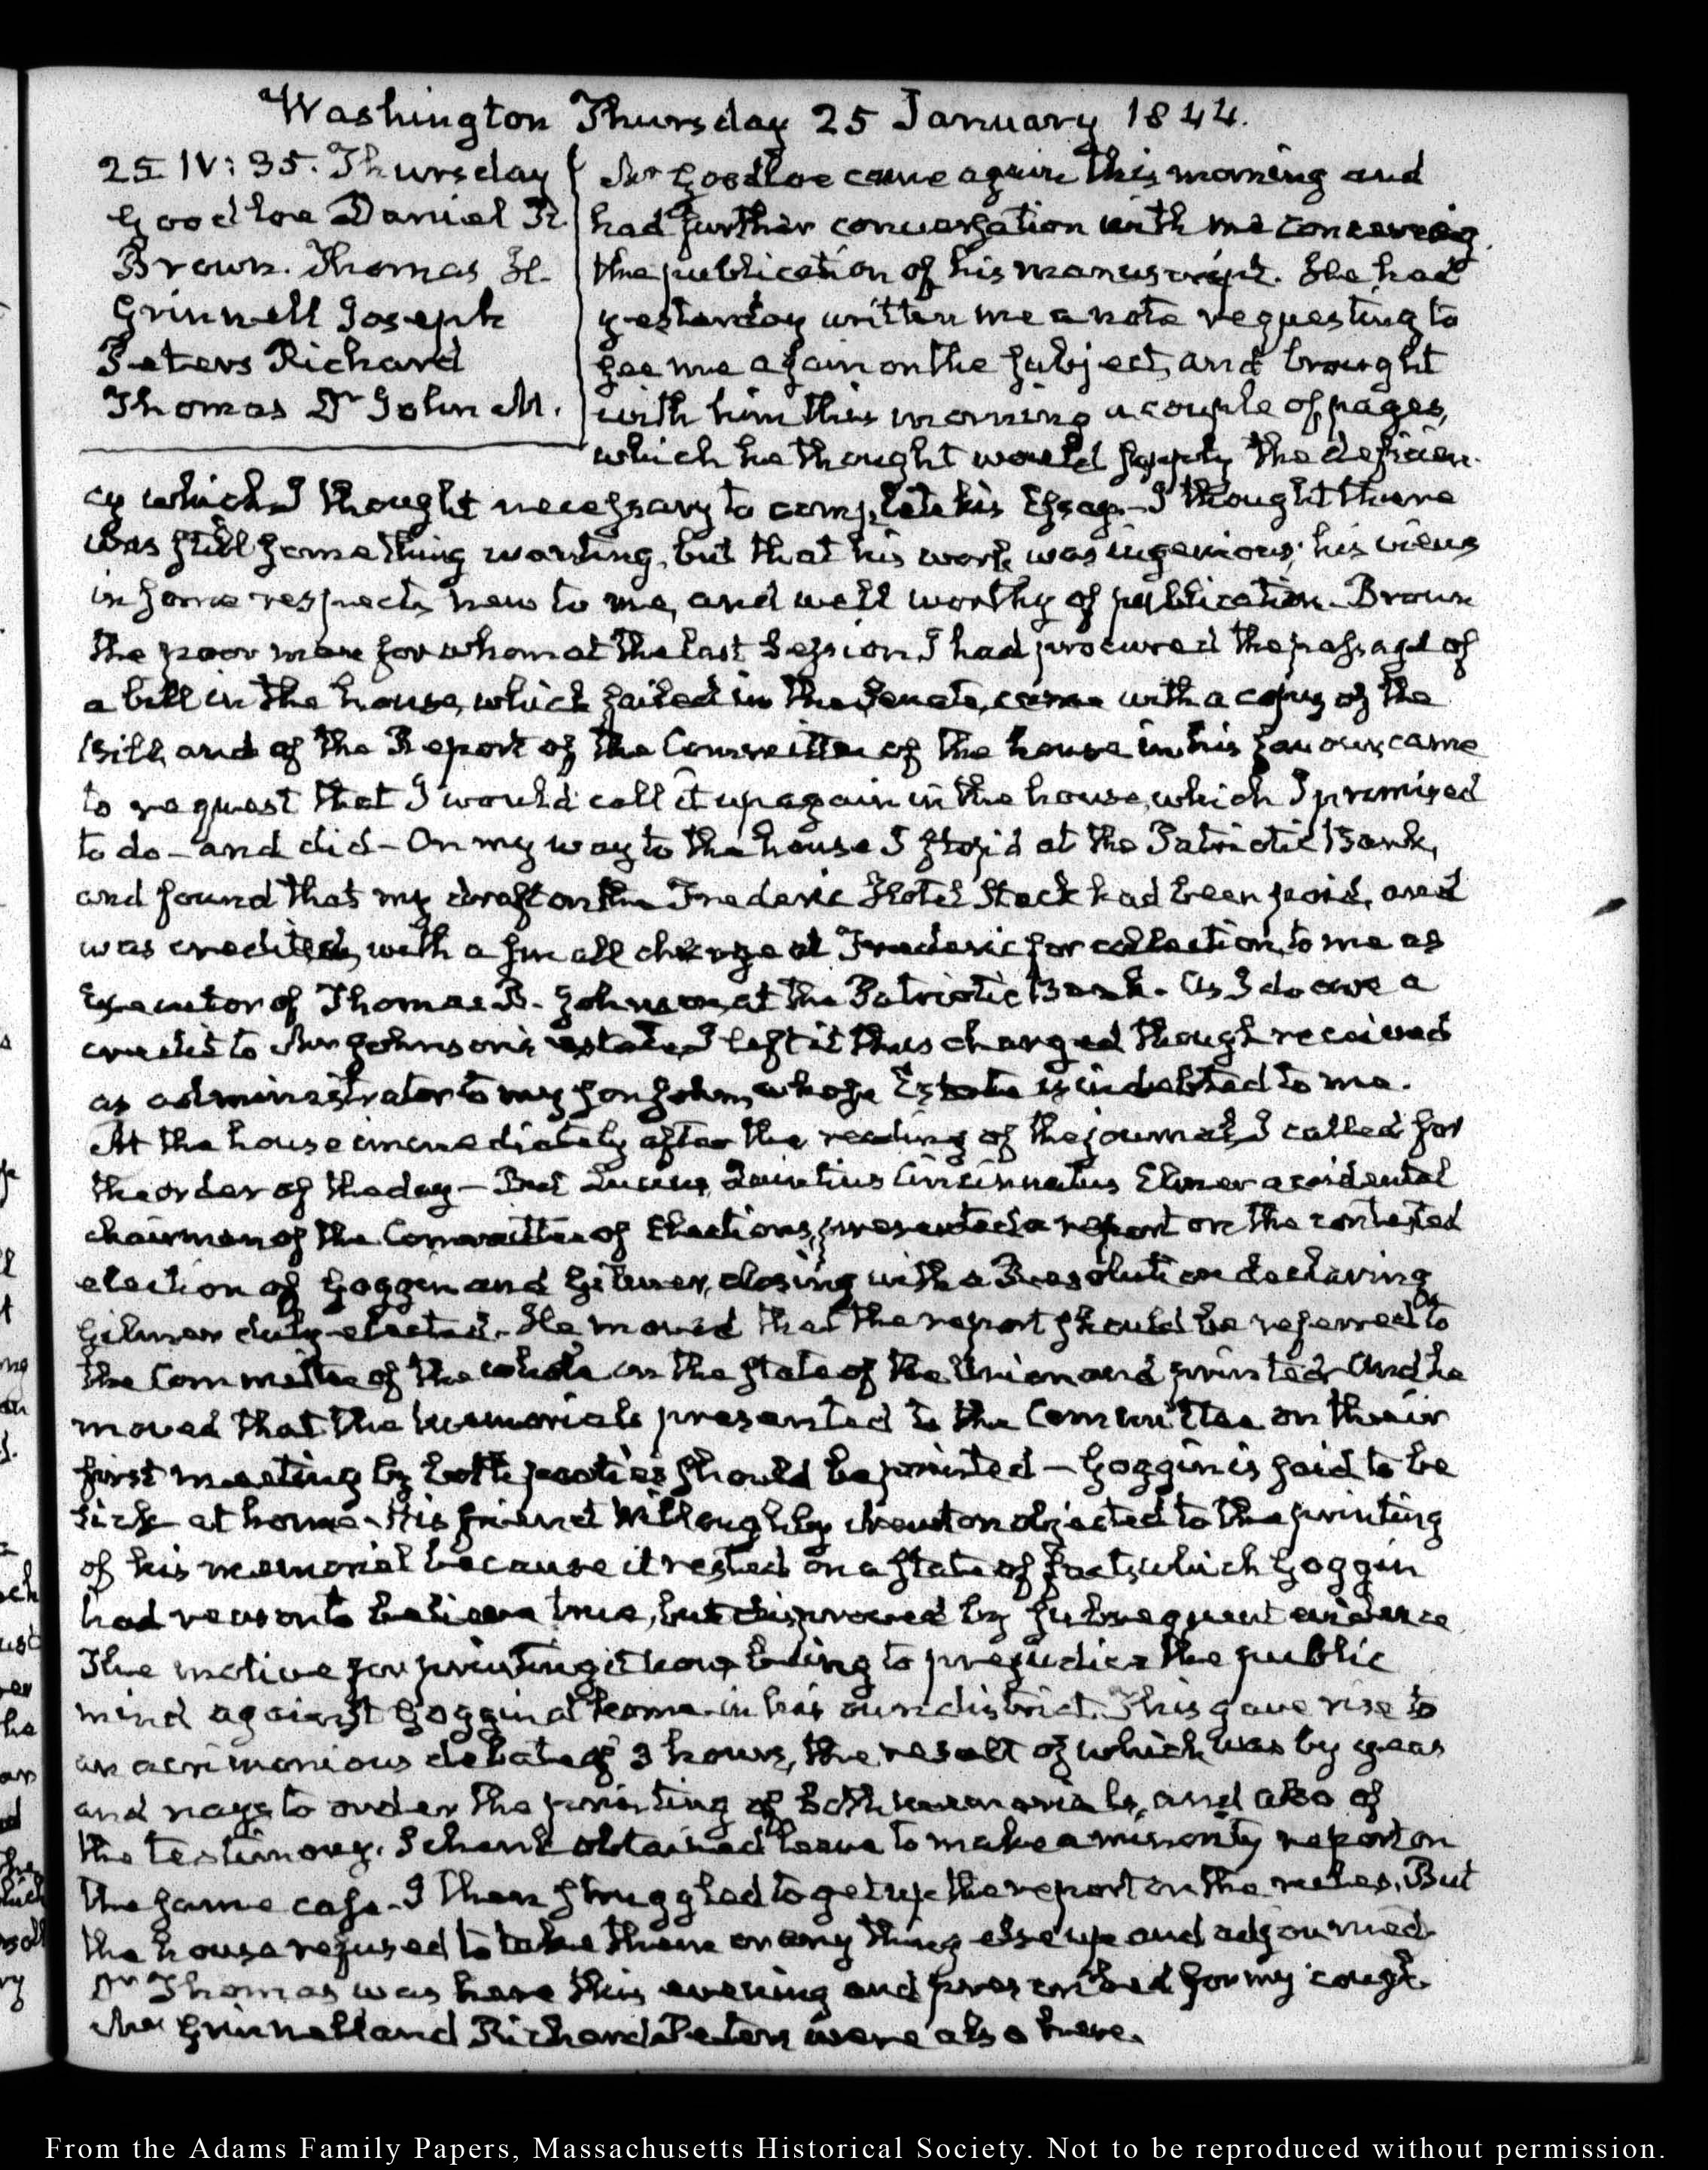 Washington Thursday 25 January 1844.
25 IV: 35. Thursday
Goodloe Daniel R.
Brown. Thomas H.
Grinnell Joseph
Peters Richard
Thomas Dr John M.
Mr Goodloe came again this morning and
had further conversation with me concerning
the publication of his manuscript. He had
yesterday written me a note requesting to
see me again on the subject, and brought
with him this morning a couple of pages,
which he thought would supply the deficien-
cy which I thought necessary to complete his Essay - I thought there
was still something wanting, but that his work was ingenious; his views
in some respects new to me, and well worthy of publication - Brown
the poor man for whom at the last Session I had procured the passage of
a bill in the house, which failed in the Senate, came with a copy of the
Bill and of the Report of the Committee of the house in his favour, came
to request that I would call it up again in the house, which I promised
to do - and did - On my way to the house I stop'd at the Patriotic Bank,
and found that my draft on the Frederic Hotel Stock had been paid, and
was credited, with a small charge at Frederic for collection, to me as
Executor of Thomas B. Johnson, at the Patriotic Bank. As I do owe a
credit to Mr Johnson's estate, I left it thus charged though received
as administrator to my son John, whose Estate is indebted to me.
At the house immediately after the reading of the journal, I called for
the order of the day - But Lucius Quintius Cincinnatus Elmer accidental
chairman of the Committee of Elections, presented a report on the contested
election of Goggin and Gilmer, closing with a Resolution declaring
Gilmer duly elected. He moved that the report should be referred to
the Committee of the whole on the state of the Union and printed - And he
moved that the memorials presented to the Committee on their
first meeting by both parties should be printed - Goggin is said to be
sick at home - His friend Willoughby Newton objected to the printing
of his memorial because it rested on a state of facts, which Goggin
had reason to believe true, but disproved by subsequent evidence.
The motive for printing it now, being to prejudice the public
mind against Goggin at home in his own district. This gave rise to
an acrimonious debate of 3 hours, the result of which was by yeas
and nays to order the printing of both memorials, and also of
the testimony. Schenk obtained leave to make a minority report on
the same case - I then struggled to get up the report on the rules, But
the house refused to take them or any thing else up and adjourned
Dr Thomas was here this evening and prescribed for my cough.
Mr Grinnell and Richard Peters were also here.
From the Adams Family Papers, Massachusetts Historical Society. Not to be reproduced without permission.